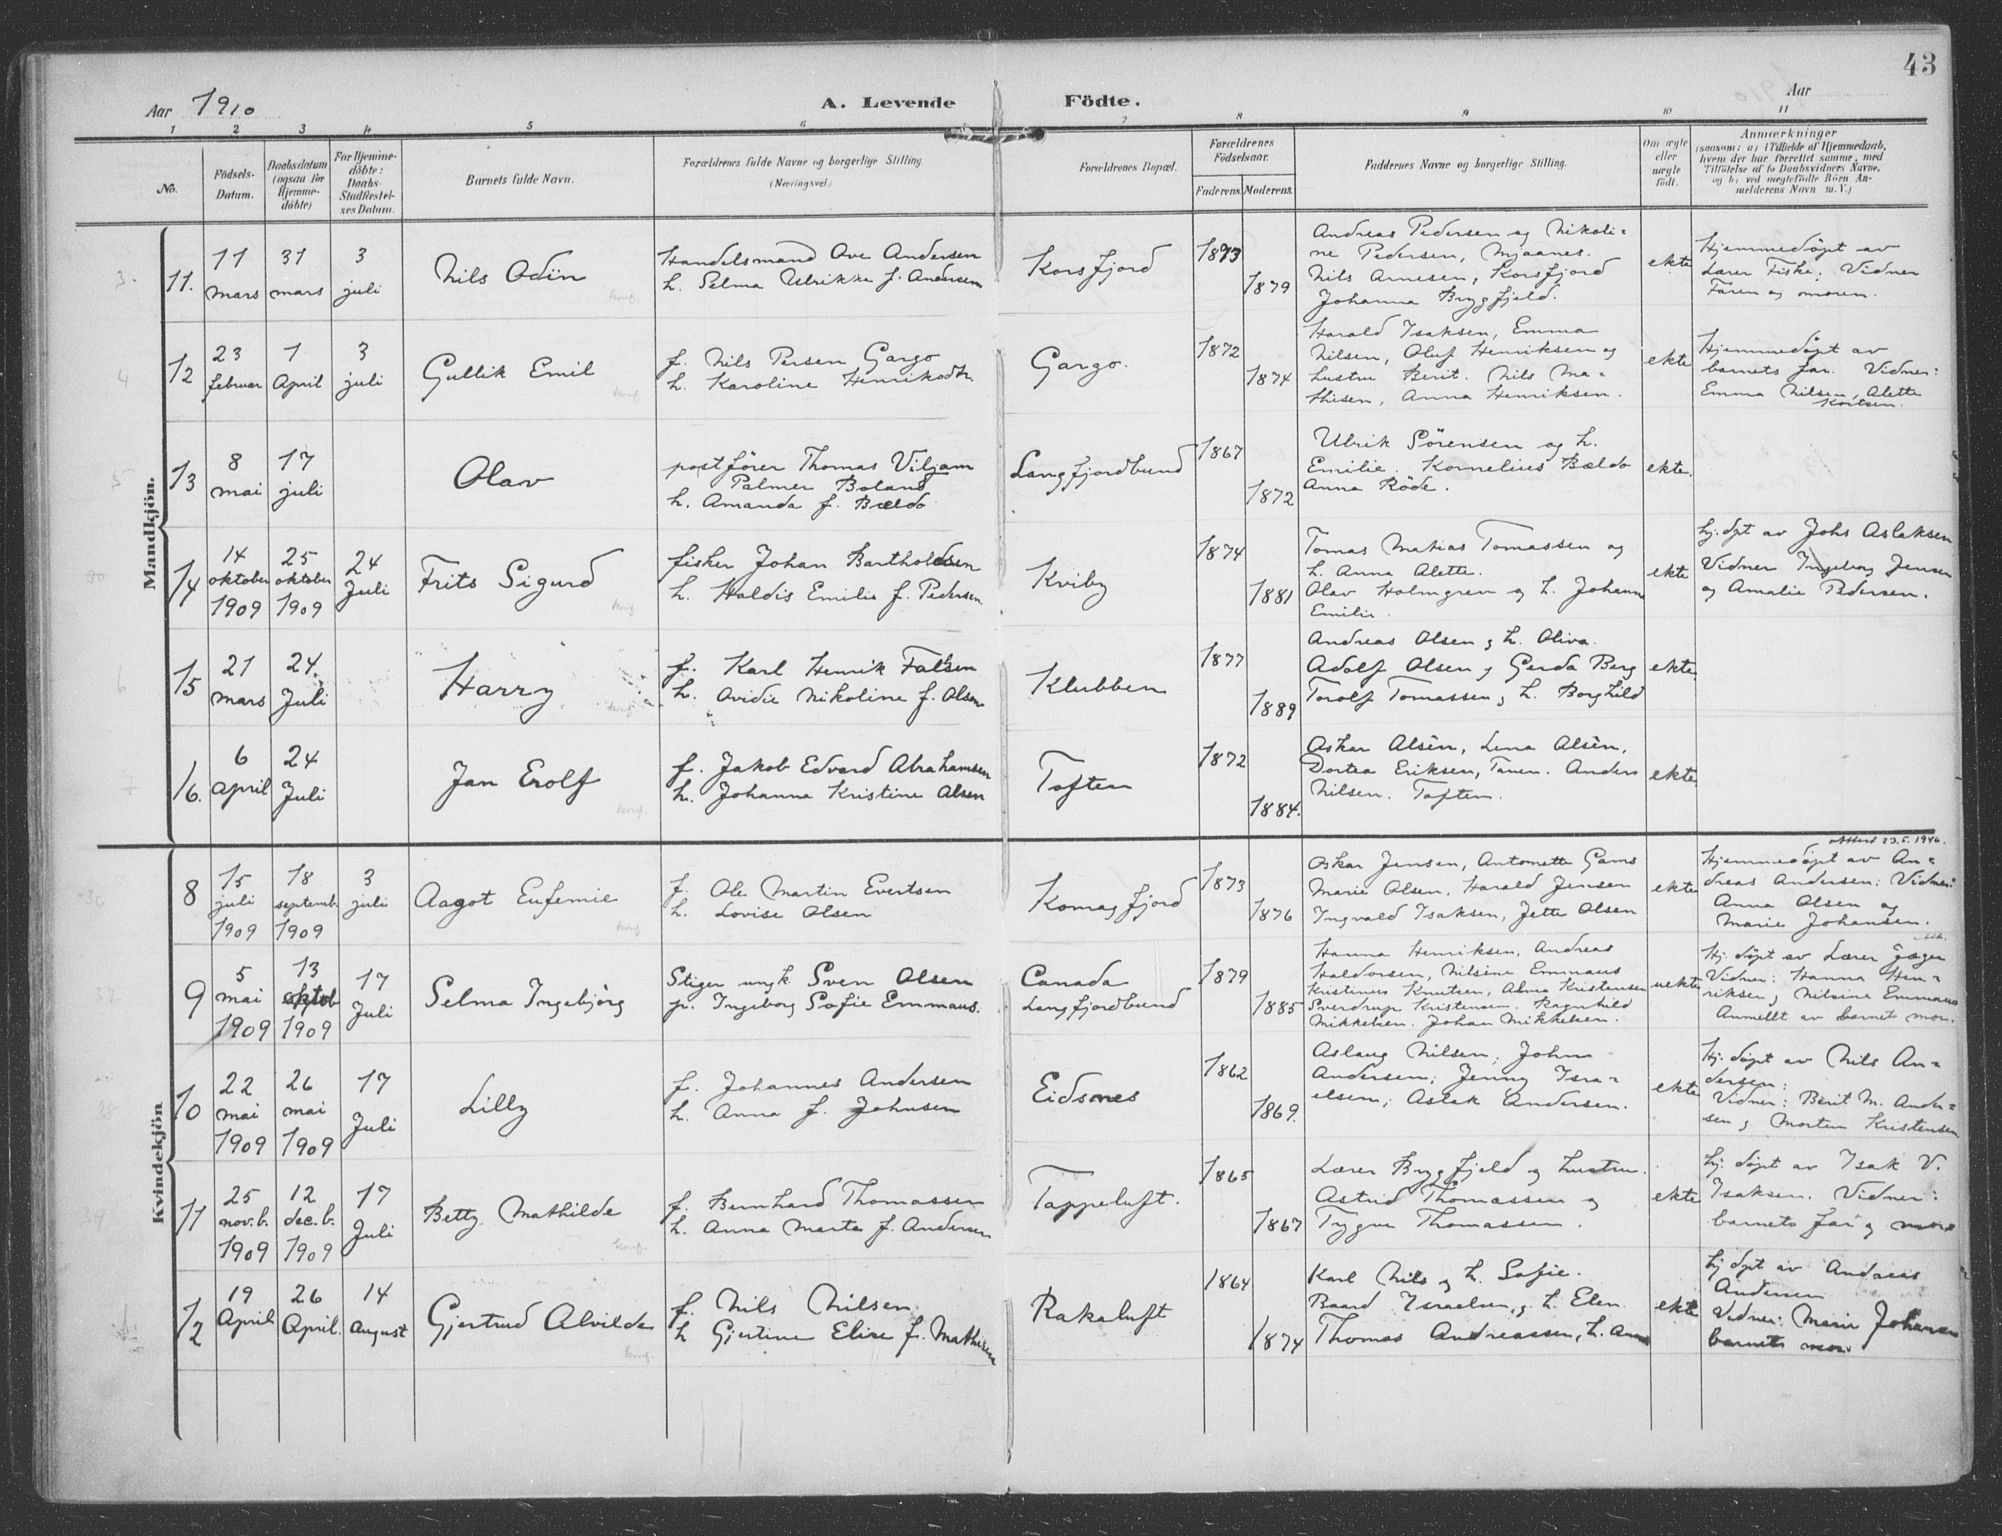 43
Aar 1910
A. Levende Födte.
Aar
1 2 3 4 5 6 7 8 9 10 11
No.
Födsels-
Datum.
Daabsdatum
(ogsaa for
Hjemme-
döbte)
For Hjemme-
döbte:
Daabs-
Stadfæstel-
ses Datum.
Barnets fulde Navn.
Forældrenes fulde Navne og borgerlige Stilling
(Næringsvei.)
Forældrenes Bopæl.
Forældrenes
Födselsaar.
Faderens. Moderens.
Faddernes Navne og borgerlige Stilling.
Om ægte
eller
uægte
födt.
Anmærkninger
(saasom: a) i Tilfælde af Hjemmedaab,
hvem der har forrettet samme, med
Tilföielse af to Daabsvidners Navne,
og b) ved uægtefödte Börn An-
melderens Navn m. V.)
Mandkjön.
11.
11
mars
31
mars
3
juli
Nils Odin
Handelsmand Ove Andersen
h. Selma Ulrikke f. Andersen
Korsfjord
1873
1879
Andreas Pedersen og Nikoli=
ne Pedersen, Mjaanes.
Nils Arnesen, Korsfjord
Johanna Brygfjeld.
ekte
Hjemmedöpt av
Lærer Fiske. Vidner
Faren og moren.
12
23
februar
1
April
3
juli
Gullik Emil
f. Nils Persen Gargo
h. Karoline Henriksdtr.
Gargo.
1872
1874
Harald Isaksen, Emma
Nilsen, Oluf Henriksen og
hustru Berit. Nils Ma=
thisen, Anna Henriksen.
ekte
Hjemmedöpt av
barnets far. Vidner:
Emma Nilsen, Alette
13
8
mai
17
juli
Olav
postfører Thomas Viljam
Palmer Boland
h. Amanda f. Bældo
Langfjordbund
1867
1872
Ulrik Sörensen og h.
Emilie. Kornelius Bældo
Anna Röde.
ekte.
14
14
oktober
1909
25
oktober
1909
24
Juli
Frits Sigurd
fisker Johan Bartholdsen
h. Haldis Emilie f. Pedersen
Kviby
1874
1881
Tomas Matias Tomassen og
h. Anna Alette.
Olav Holmgren og h. Johanne
Emilie.
ekte
hj. dpt av Johs Aslaksen
Vidner Ingeborg Jensen
og Amalie Pedersen.
15
21
mars
24
Juli
Harry
f. Karl Henrik Falsen
h. Ovidie Nikoline f. Olsen
Klubben
1877
1889
Andreas Olsen og h. Oliva.
Adolf Olsen og Gerda Berg
Torolf Tomassen og h. Borghild
ekte
16.
6
April
24
Juli
Jan Erolf
f. Jakob Edvard Abrahamsen
h. Johanna Kristine Olsen
Toften
1872
1884.
Oskar Olsen, Lina Olsen,
Dortea Eriksen, Tanen. Anders
Nilsen. Toften.
ekte
Kvindekjön
Attest 23.5.1946.
8
15
juli
1909
18
septemb.
1909
3
juli
Aagot Eufemie
f. Ole Martin Evertsen
h. Lovise Olsen
Komagfjord
1873
1876
Oskar Jensen, Antonette Gams
Marie Olsen, Harald Jensen
Ingvald Isaksen, Jette Olsen
ekte
Hjemmedöpt av An=
dreas Andersen: Vidner:
Anna Olsen og
Marie Johansen.
9
5
mai
1909
13
1909
17
Juli
Selma Ingebjörg
Stiger ungk Sven Olsen
pi. Ingeborg Sofie Emmaus.
Canada
Langfjordbund
1879
1885
Hanna Henriksen, Andreas
Haldorsen, Nilsine Emmaus
Kristinus Knutsen, Alma Kristensen
Sverdrup Kristensen. Ragnhild
Mikkelsen. Johan Mikkelsen.
uekte
Hj. döpt av Lærer Jæger
Vidner: Hanna Hen=
riksen og Nilsine Emmaus
Anmeldt av barnets mor.
10
22
mai
1909
26
mai
1909
17
Juli
Lilly
f. Johannes Andersen
h. Anna f. Johnsen
Eidsnes
1862
1869.
Aslaug Nilsen; John
Andersen; Jenny Isra=
elsen; Aslak Andersen.
ekte
Hj. döpt av Nils An=
dersen:
Vidner: Berit M. Ander=
sen og Morten Kristensen
11
25
nov.b.
1909
12
dec.b.
1909
17
Juli
Betty Mathilde
f. Bernhard Thomassen
h. Anna Marta f. Andersen
Tappeluft.
1865
1867
Lærer Brygfjeld og hustru.
Astrid Thomassen og
Trygve Thomassen.
ekte
hj. döpt av Isak V.
Isaksen. Vidner:
barnets far og mor
12
19
April
26
April.
14
August
Gjertrud Alvilde
f. Nils Nilsen
h Gjertine Elise f. Mathisen
Rakaluft
1864
1874
Karl Nils og h. Sofie.
Baard Israelsen og h. Elen
Thomas Andreassen, h. Anna
ekte
hj dpt av Andreas
Andersen
Vidner: Marie Johansen
barnets mor.